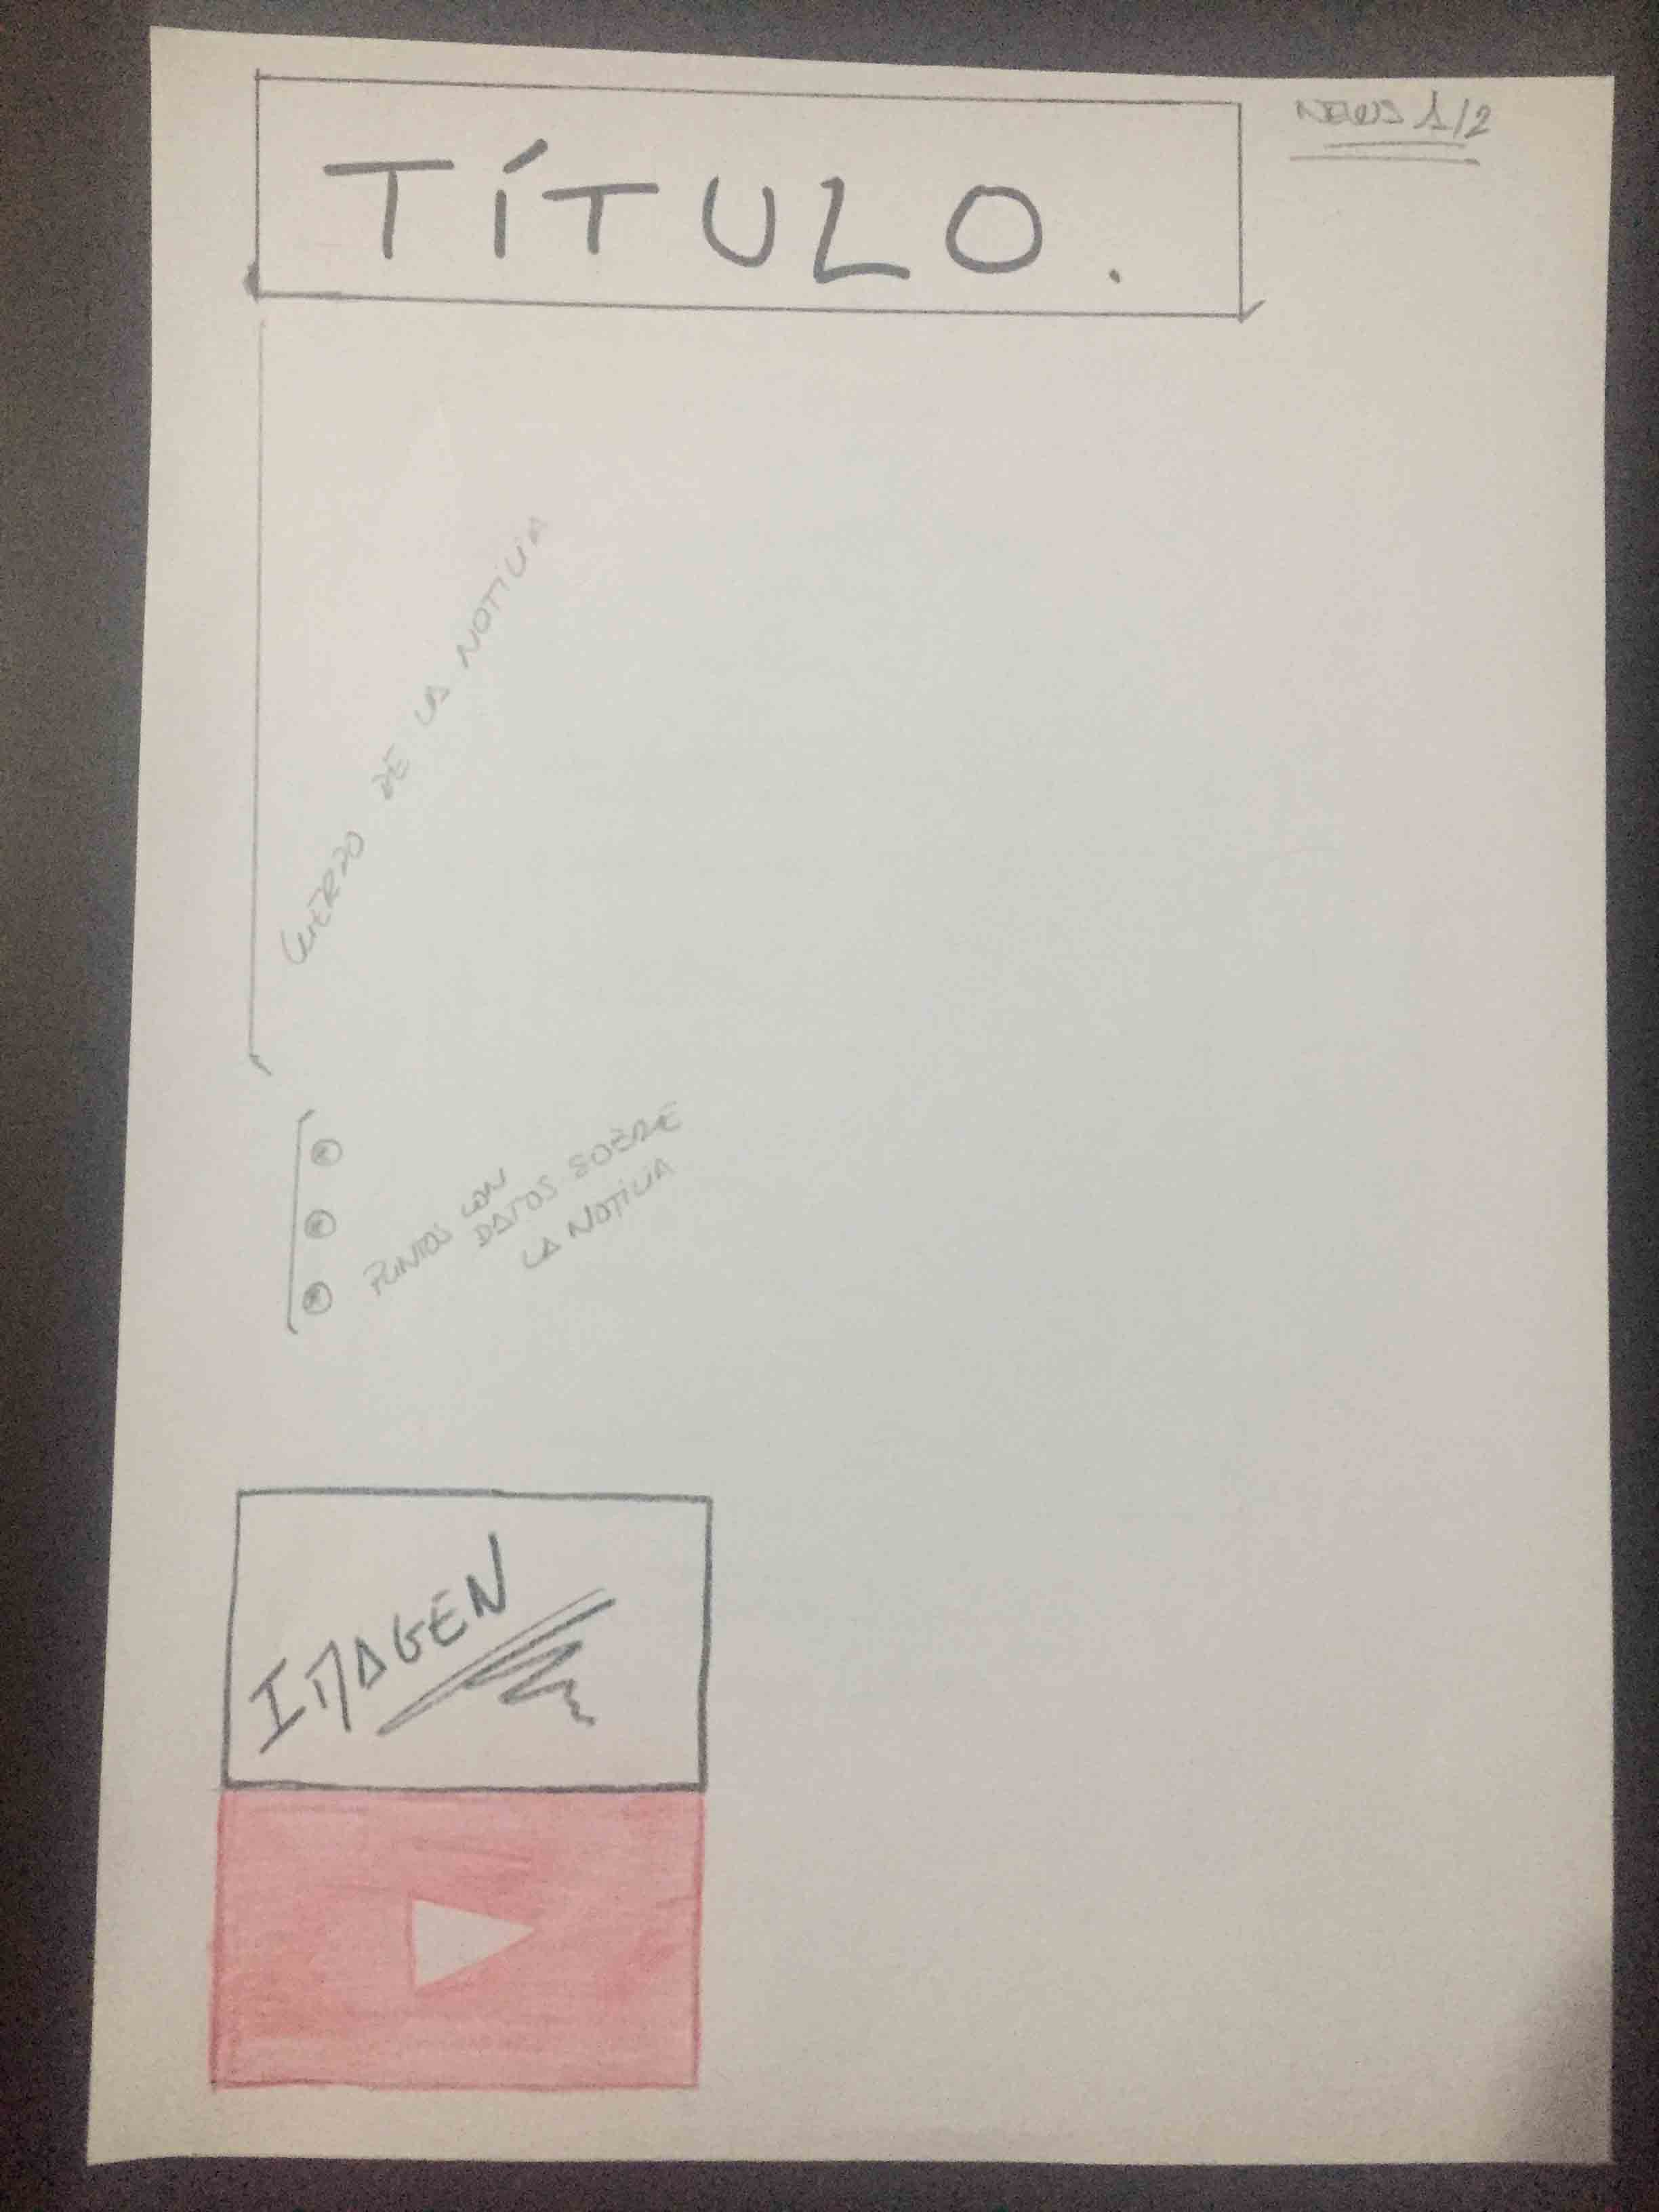 NEWS 1/2
TÍTULO.
CUERPO DE LA NOTICIA
PUNTOS CON
DATOS SOBRE
LA NOTICIA
IMAGEN